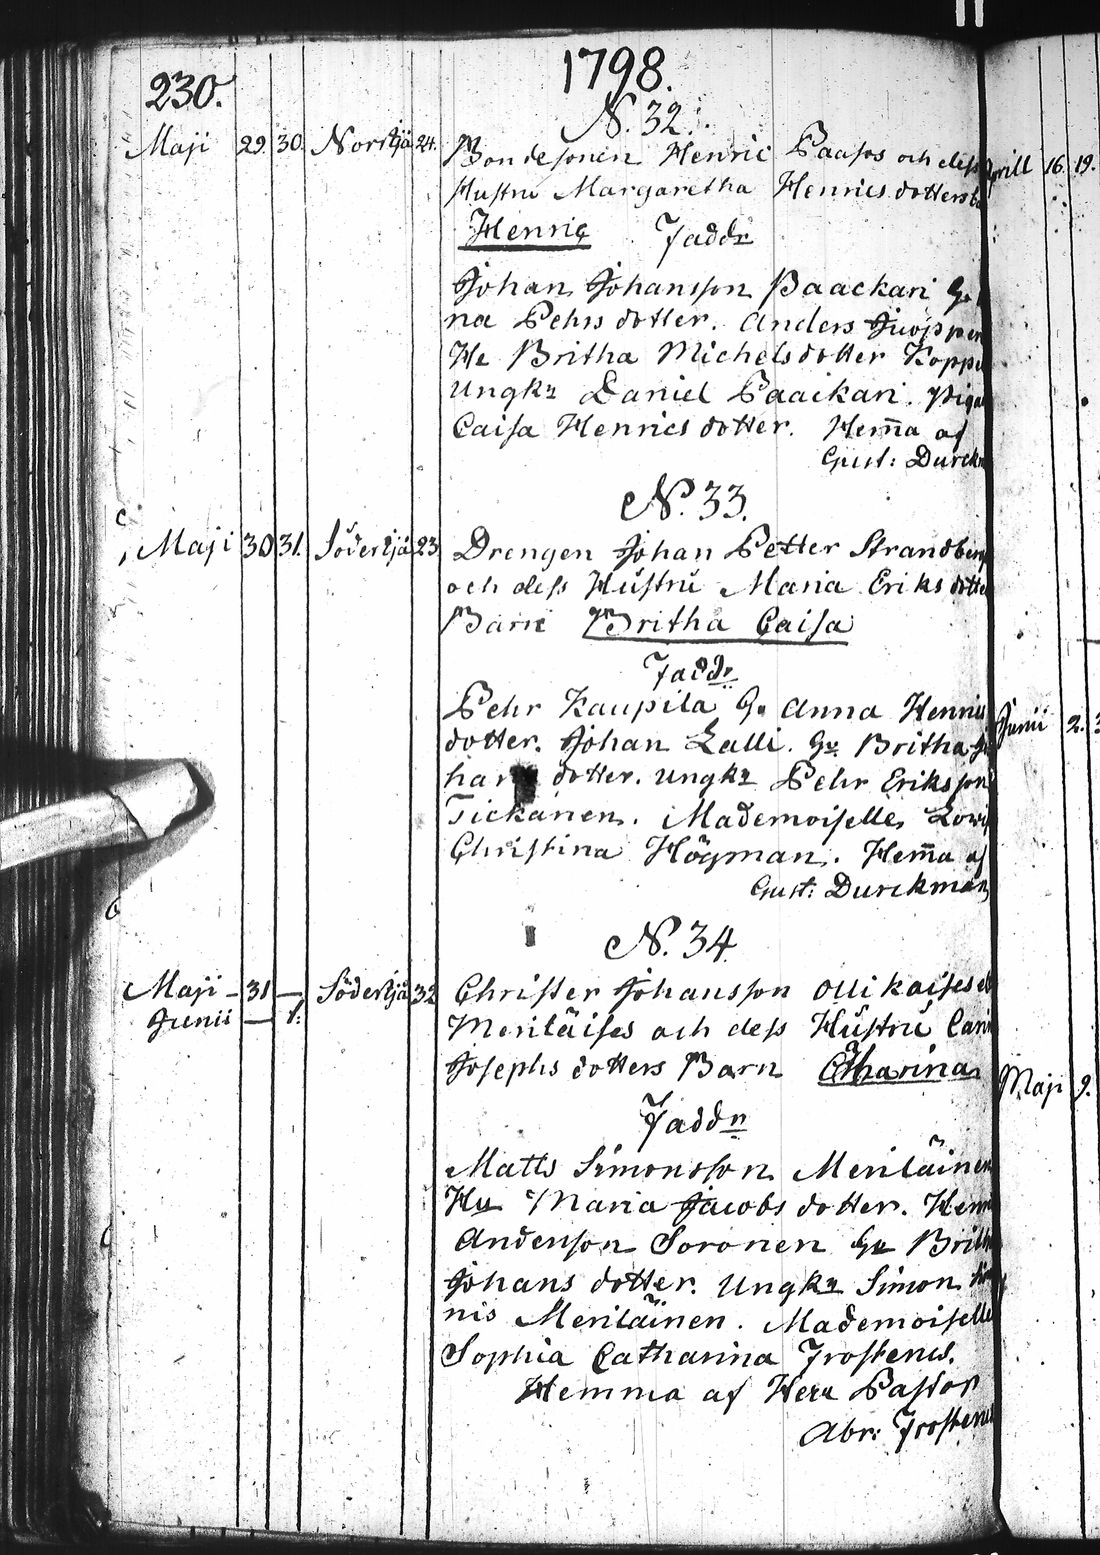 230.
1798.
N. 32.
Maji 29. 30. Norrsjä 24. Bondesonen Henric Paasos och dess
Hustru Margaretha Henricsdotters
Henric Faddr
Johan Johansson Paackari
na Pehrsdotter. Anders
He Britha Michelsdotter
Ungkr Daniel Paaikari. Piga
Caisa Henricsdotter. Hem̄a af
Gust: Durckm
N. 33.
Maji 30 31. Södersjä 23 Drengen Johan Petter Strandberg
och dess Hustru Maria Eriksdotte
Barn Britha Caisa
Faddr
Pehr Kaupila Gu Anna Henrics
dotter. Johan Lalli. Gu Britha
dotter. Ungkr Pehr Eriksson
Tickanen. Mademoiselle Lowis
Christina Högman. Hem̄a af
Gust: Durckman
N. 34.
Maji – 31 – Södersjä 32 Christer Johansson
Junii – 1:
Meriläises och dess Hustru Carin
Josephs dotters Barn Catharina
Faddr
Matts Simonsson Meriläinen
Hu Maria Jacobs dotter. Henri
Andersson Soronen Gu Britha
Johans dotter. Ungkr Simon
nis Meriläinen. Mademoiselle
Sophia Catharina Frosterus.
Hemma af Herr Pastor
Abr: Frosterus
April 16. 19.
Junii 2. 3
Maji 9.